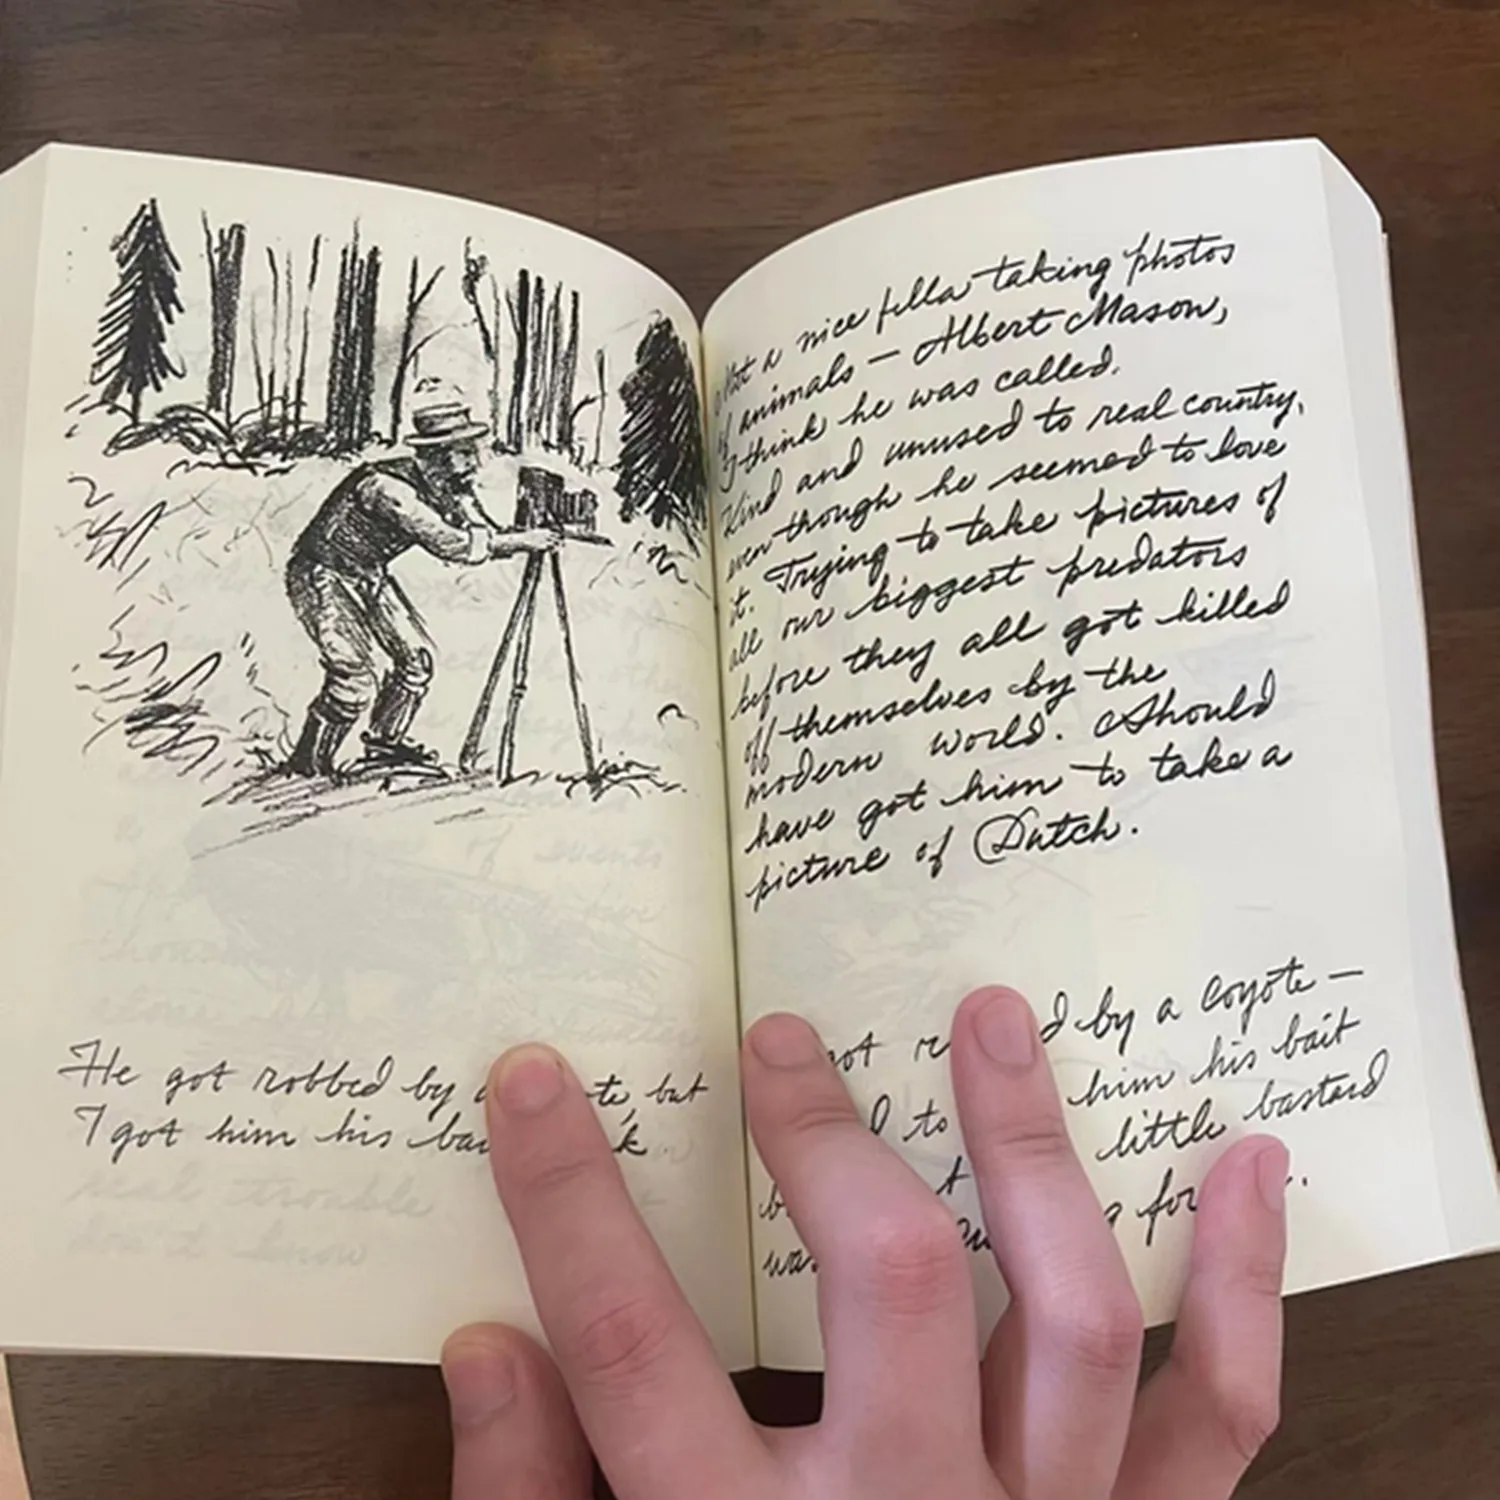 He got robbed by a but
I got him his
Met a nice fella taking photos
of animals — Albert Mason,
I think he was called.
Kind and unused to real country,
even though he seemed to love
it. Trying to take pictures of
all our biggest predators
before they all got killed
off themselves by the
modern world. Should
have got him to take a
picture of Dutch.
got by a coyote —
to him his bait
little bastard
was for